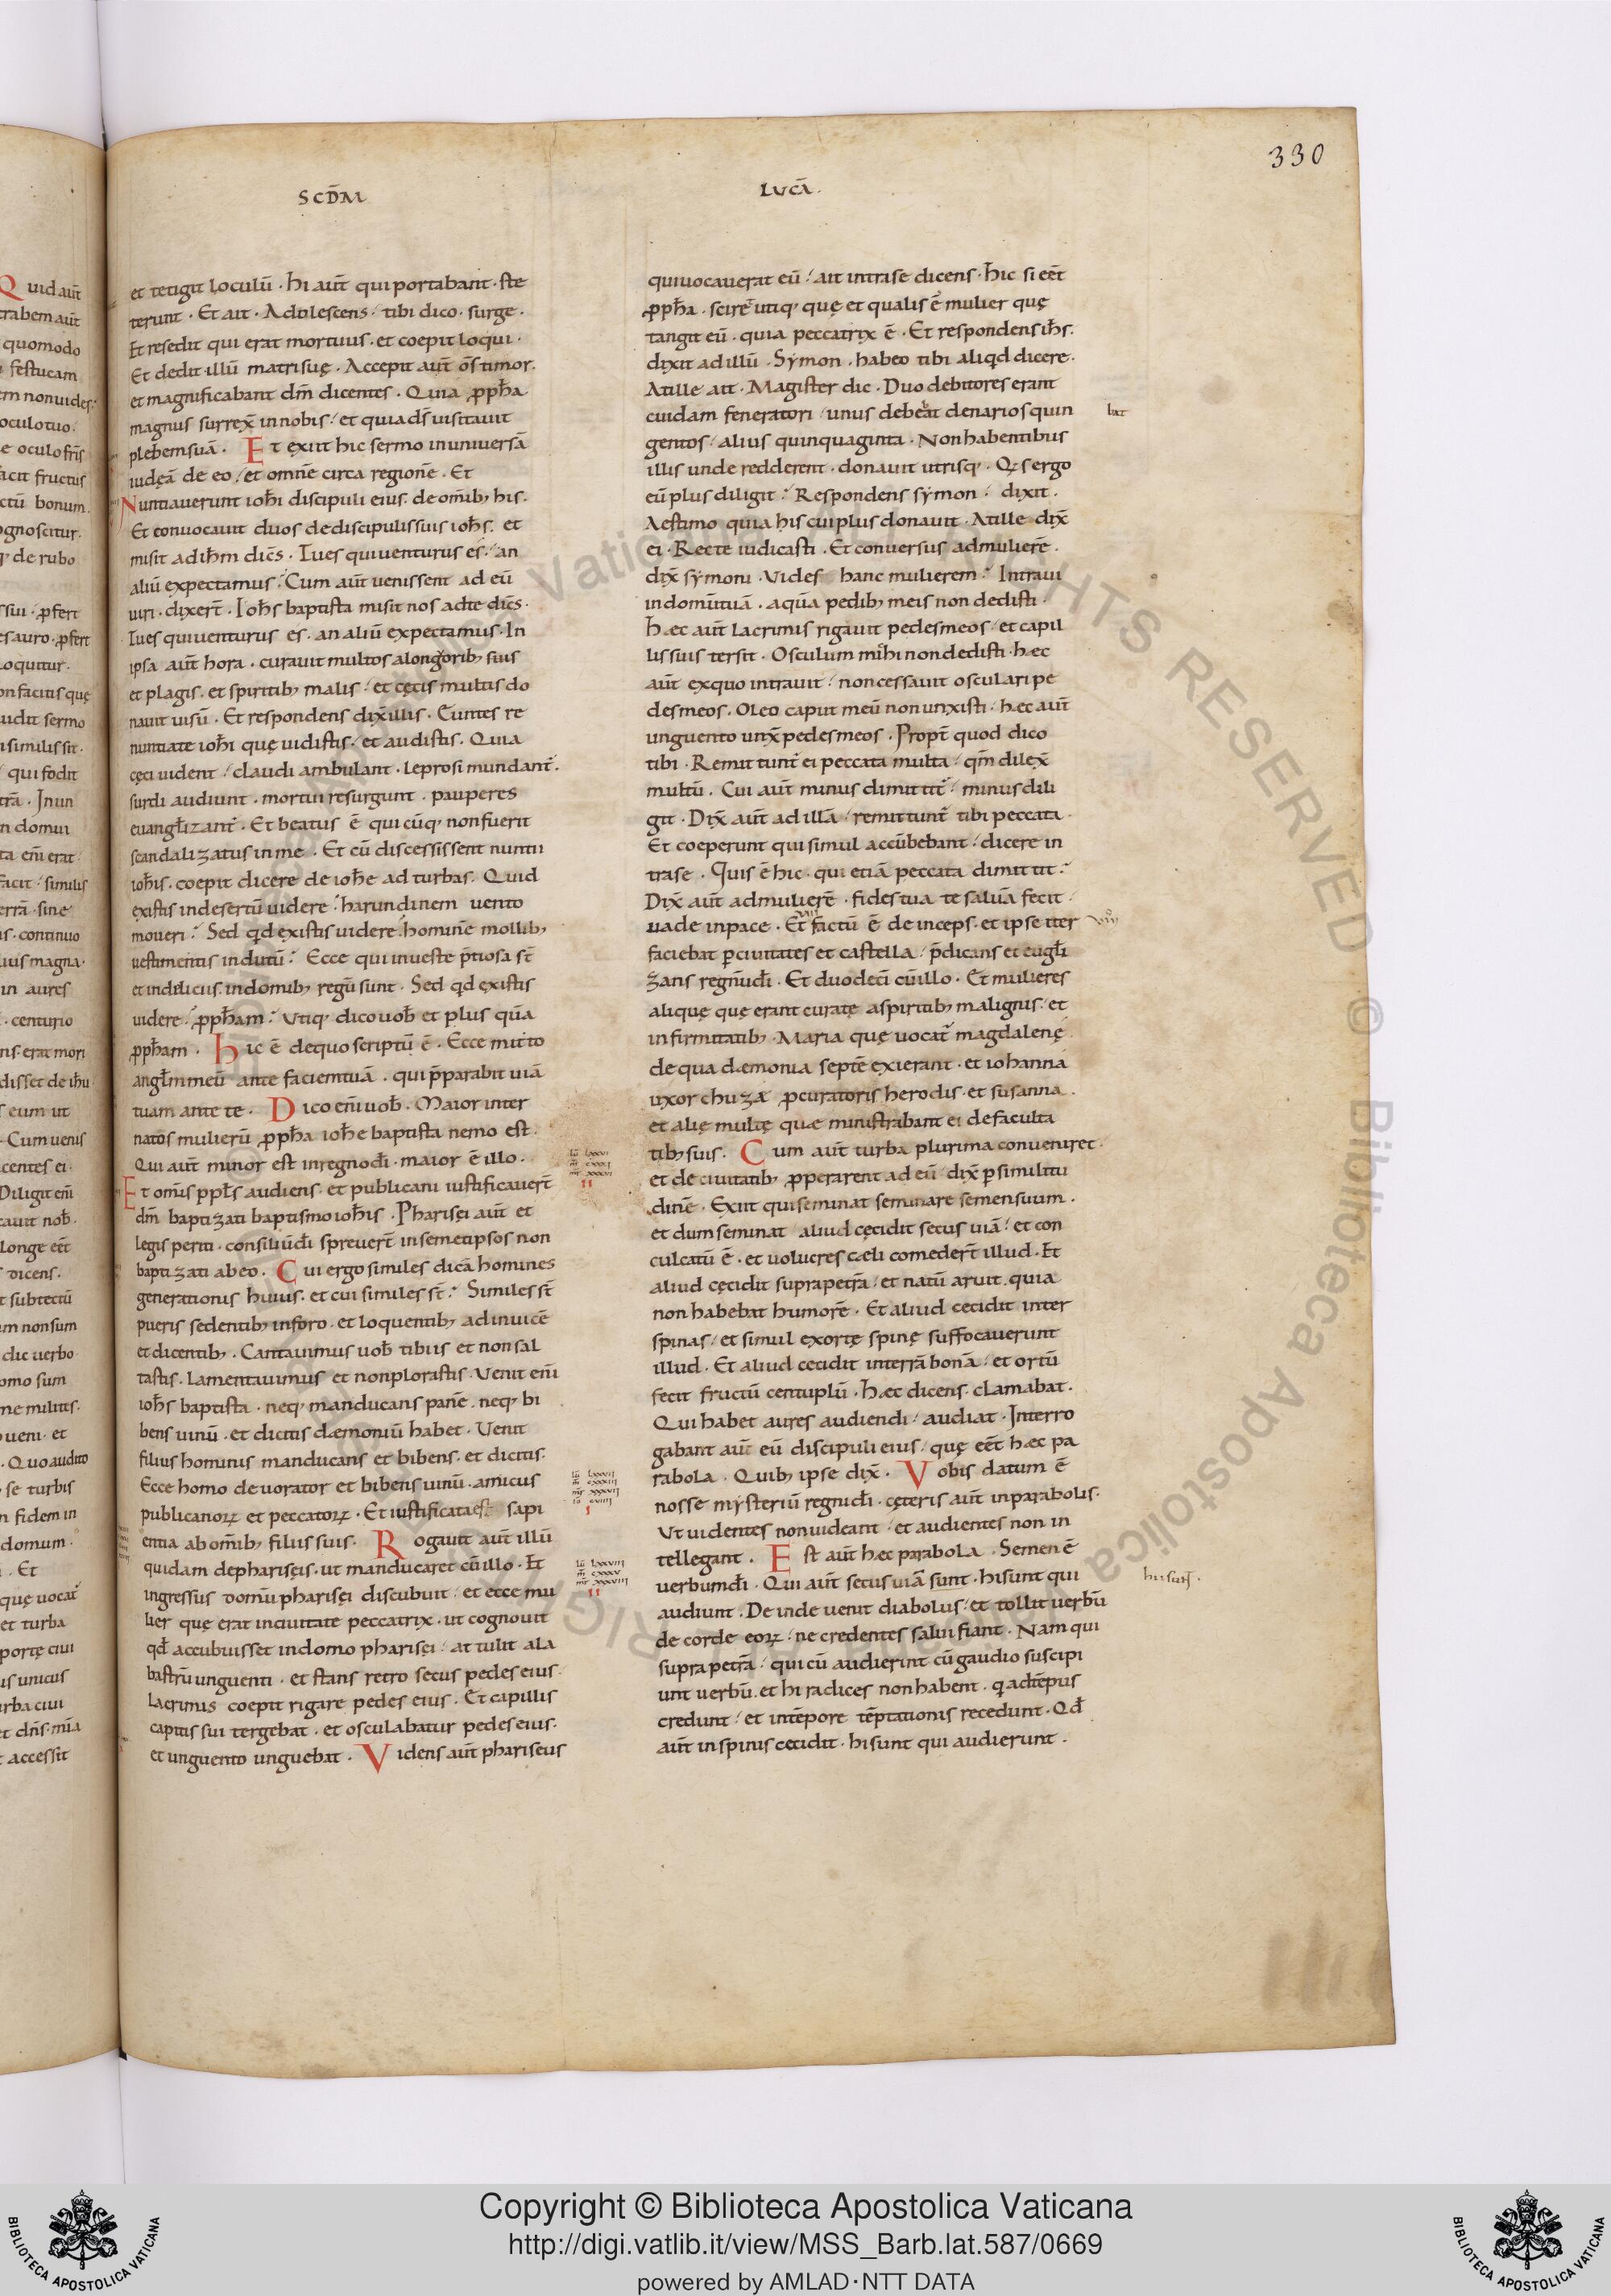 330
SCDM̄
LUCĀ.
et tetigit loculū · hi aut̄ qui portabant · ste
terunt · Et ait · Adolescens · tibi dico · surge ·
Et resedit qui erat mortuus · et coepit loqui ·
Et dedit illū matri suę · Accepit aut̄ om̄s timor.
et magnificabant dm̄ dicentes · Quia ꝓph̄a
magnus surrex̄ in nobis / et quia ds̄ uisitauit
plebem suā · Et exiit hic sermo in uniuersā
iudęā de eo / et omnē circa regionē · Et
Nuntiauerunt ioh̄i discipuli eius · de om̄ib; his ·
Et conuocauit duos de discipulis suis ioh̄s · et
misit ad ih̄m dic̄s · Tu es qui uenturus es / an
aliū expectamus? Cum aut̄ uenissent ad eū
uiri · dixer̄t · Ioh̄s baptista misit nos ad te dic̄s ·
Tu es qui uenturus es · an aliū expectamus · In
ipsa aut̄ hora · curauit multos a longorib; suis
et plagis · et spiritib; malis / et cęcis multis do
nauit uisū · Et respondens dix̄ illis · Euntes re
nuntiate ioh̄i quę uidistis / et audistis · Quia
cęci uident / claudi ambulant · leprosi mundant̄ ·
surdi audiunt · mortui resurgunt · pauperes
euangl̄izant̄ · Et beatus ē qui cūq; non fuerit
scandalizatus in me · Et cū discessissent nuntii
ioh̄is · coepit dicere de ioh̄e ad turbas · Quid
existis in desertū uidere? harundinem uento
moueri? Sed qd existis uidere? hominē mollib;
uestimentis indutū? Ecce qui in ueste p̄tiosa st̄
et in delicus · in domib; regū sunt · Sed qd existis
uidere? ꝓph̄am? Utiq; dico uob̄ et plus quā
ꝓph̄am · Hic ē de quo scriptū ē · Ecce mitto
angl̄m meū ante faciem tuā · qui p̄parabit uiā
tuam ante te · Dico en̄i uob̄ · Maior inter
natos mulierū ꝓph̄a ioh̄e baptista nemo est ·
Qui aut̄ minor est in regno dī · maior ē illo ·
Et om̄is ppl̄s audiens · et publicani iustificauer̄t
dm̄ baptizati baptismo ioh̄is · Pharisęi aut̄ et
legis periti · consiliū dī spreuer̄t in semetipsos non
baptizati ab eo · Cui ergo similes dicā homines
generationis huius · et cui similes st̄? Similes st̄
pueris sedentib; in foro · et loquentib; ad inuicē
et dicentib; · Cantauimus uob̄ tibiis et non sal
tastis · Lamentauimus et non plorastis · Uenit en̄i
ioh̄s baptista · neq; manducans panē · neq; bi
bens uinū · et dicitis dæmoniū habet · Uenit
filius hominis manducans et bibens · et dicitis ·
Ecce homo deuorator et bibens uinū · amicus
publicanoꝝ et peccatoꝝ · Et iustificata est sapi
entia ab om̄ib; filiis suis · Rogauit aut̄ illū
quidam de pharisęis · ut manducaret cū illo · Et
ingressus domū pharisęi discubuit / et ecce mu
lier quę erat in ciuitate peccatrix · ut cognouit
qd̄ accubuisset in domo pharisęi / attulit ala
bastrū unguenti · et stans retro secus pedes eius ·
lacrimis coepit rigare pedes eius · Et capillis
capitis sui tergebat · et osculabatur pedes eius ·
et unguento unguebat · Videns aut̄ phariseus
qui uocauerat eū / ait intra se dicens · hic si eēt
ꝓph̄a · sciret utiq; quę et qualis ē mulier quę
tangit eū · quia peccatrix ē · Et respondens ih̄s ·
dixit ad illū · Symon · habeo tibi aliqd dicere ·
At ille ait · Magister dic · Duo debitores erant
cuidam feneratori / unus debeat denarios quin
bat
gentos / alius quinquaginta · Non habentibus
illis unde redderent · donauit utrisq; · Qs ergo
eū plus diligit? Respondens symon / dixit ·
Aestimo quia his cui plus donauit · At ille dix̄
ei · Recte iudicasti · Et conuersus ad mulierē ·
dix̄ symoni · Vides hanc mulierem? Intraui
in domū tuā · aquā pedib; meis non dedisti ·
Hæc aut̄ lacrimis rigauit pedes meos / et capil
lis suis tersit · Osculum mihi non dedisti · hæc
aut̄ ex quo intrauit / non cessauit osculari pe
des meos · Oleo caput meū non unxisti · hæc aut̄
unguento unx̄ pedes meos · Propt̄ quod dico
tibi · Remittunt̄ ei peccata multa / qm̄ dilex̄
multū · Cui aut̄ minus dimittit̄ / minus dili
git · Dix̄ aut̄ ad illā / remittunt̄ tibi peccata ·
Et coeperunt qui simul accūbebant / dicere in
tra se · Quis ē hic · qui etiā peccata dimittit?
Dix̄ aut̄ ad mulierē · fides tua te saluā fecit ·
uade in pace · Et factū ē deinceps · et ipse iter
faciebat ꝑ ciuitates et castella / p̄dicans et eugl̄i
zans regnū dī · Et duodeci cū illo · Et mulieres
aliquę quę erant curatę a spiritib; malignis / et
infirmitatib; · Maria quę uocat̄ magdalenę
de qua dæmonia septē exierant · et iohanna
uxor chuzæ ꝓcuratoris herodis · et susanna ·
et alię multę quæ ministrabant ei de faculta
tib; suis · Cum aut̄ turba plurima conueniret ·
et de ciuitatib; ꝓperarent ad eū / dix̄ ꝑ similitu
dinē · Exiit qui seminat seminare semen suum ·
et dum seminat / aliud cęcidit secus uiā / et con
culcatū ē · et uolucres cæli comeder̄t illud · Et
aliud cęcidit supra petrā / et natū aruit · quia
non habebat humorē · Et aliud cecidit inter
spinas / et simul exortę spinę suffocauerunt
illud · Et aliud cecidit in terrā bonā / et ortū
fecit fructū centuplū · Hæc dicens clamabat ·
Qui habet aures audiendi / audiat · Interro
gabant aut̄ eū discipuli eius / quę eēt hæc pa
rabola · Quib; ipse dix̄ · Vobis datum ē
nosse mysteriū regni dī · cęteris aut̄ in parabolis ·
Ut uidentes non uideant / et audientes non in
tellegant · Est aut̄ hæc parabola · Semen ē
uerbum dī · Qui aut̄ secus uiā sunt · hi sunt qui
audiunt · Deinde uenit diabolus / et tollit uerbū
de corde eoꝝ / ne credentes salui fiant · Nam qui
supra petrā / qui cū audierint cū gaudio suscipi
unt uerbū · et hi radices non habent · q ad tēpus
credunt / et in tēpore tēptationis recedunt · Qd̄
aut̄ in spinis cecidit · hi sunt qui audierunt ·
Copyright © Biblioteca Apostolica Vaticana
http://digi.vatlib.it/view/MSS_Barb.lat.587/0669
powered by AMLAD·NTT DATA
BIBLIOTECA APOSTOLICA VATICANA
BIBLIOTECA APOSTOLICA VATICANA